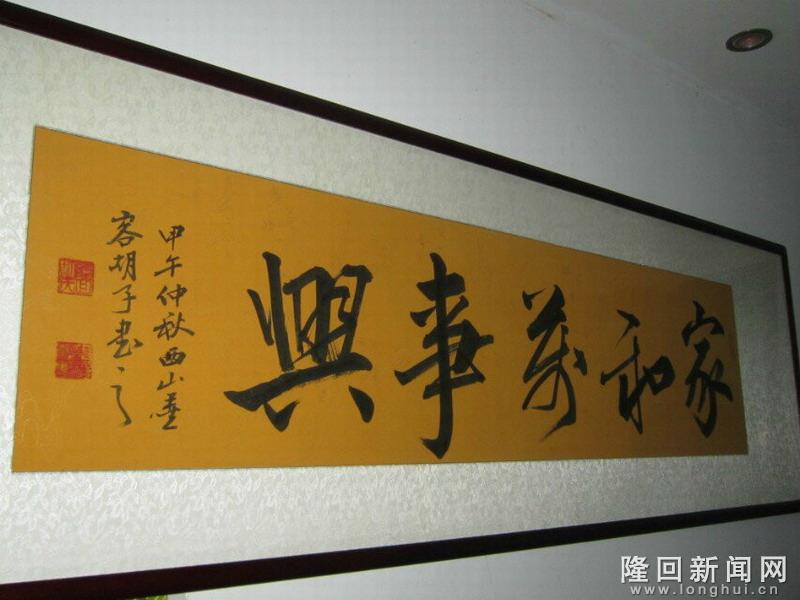 家和萬事興
甲午仲秋西山墨
客胡子書之
隆回新闻网
www.longhui.cn